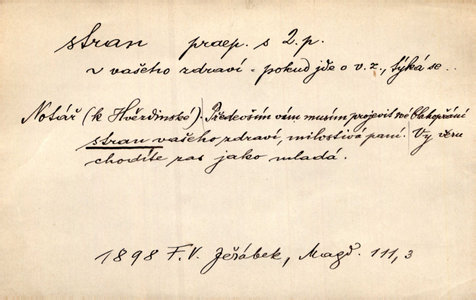 stran praep. s 2. p.
~ vašeho zdraví - pokud jde o v. z., týká se..
Notář (k Hvězdinské): Především vám musím projevit své blahopřání
stran vašeho zdraví, milostivá paní. Vy věru
chodíte zas jako mladá.
1898 F. V. Jeřábek, Magd. 111,3